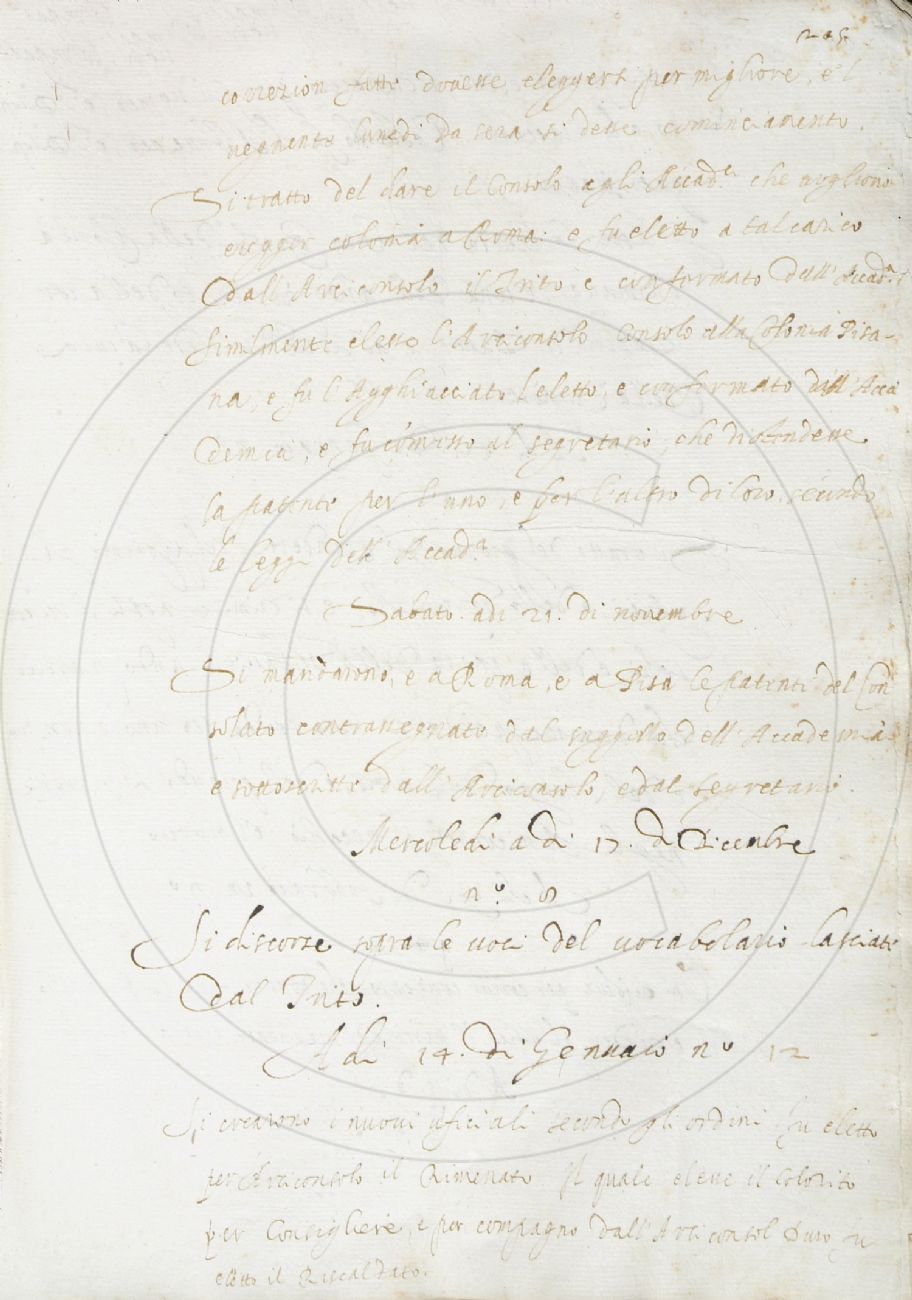 205
correzion fatte dovesse eleggersi per migliore, e 'l
vegnente lunedì da sera si desse cominciamento.
Si trattò del dare il Consolo agli Accad.ci che vogliono
eregger colonia a Roma: e fu eletto a tal carico
dall'Arciconsolo il Trito e confermato dell'Accad.a
similmente elesse l'Arciconsolo Consolo alla Colonia Pisa-
na, e fu l'Agghiacciato l'eletto, e confermato dall'Acca
demia, e fu comesso al segretario, che distendesse
la patente per l'uno, e per l'altro di loro, secondo
le leggi dell'Accad.a
Sabato. adi 21. di novembre
Si mandarono, e a Roma, e a Pisa le patenti del Con
solato contrassegnate dal suggello dell'Accademia
e sottoscritte dall'Arciconsolo, e dal segretario.
Mercoledi a di 17. di Dicenbre
n.o 8
Si discorse sopra le voci del vocabolario lasciate
dal Trito.
A di 14. di Gennaio n.o 12
Si crearono i nuovi uficiali secondo gli ordini fu eletto
per Arciconsolo il Rimenato Il quale elesse il Colorito
per Consigliere, e per compagno dall'Arciconsol Duro fu
eletto il Riscaldato.